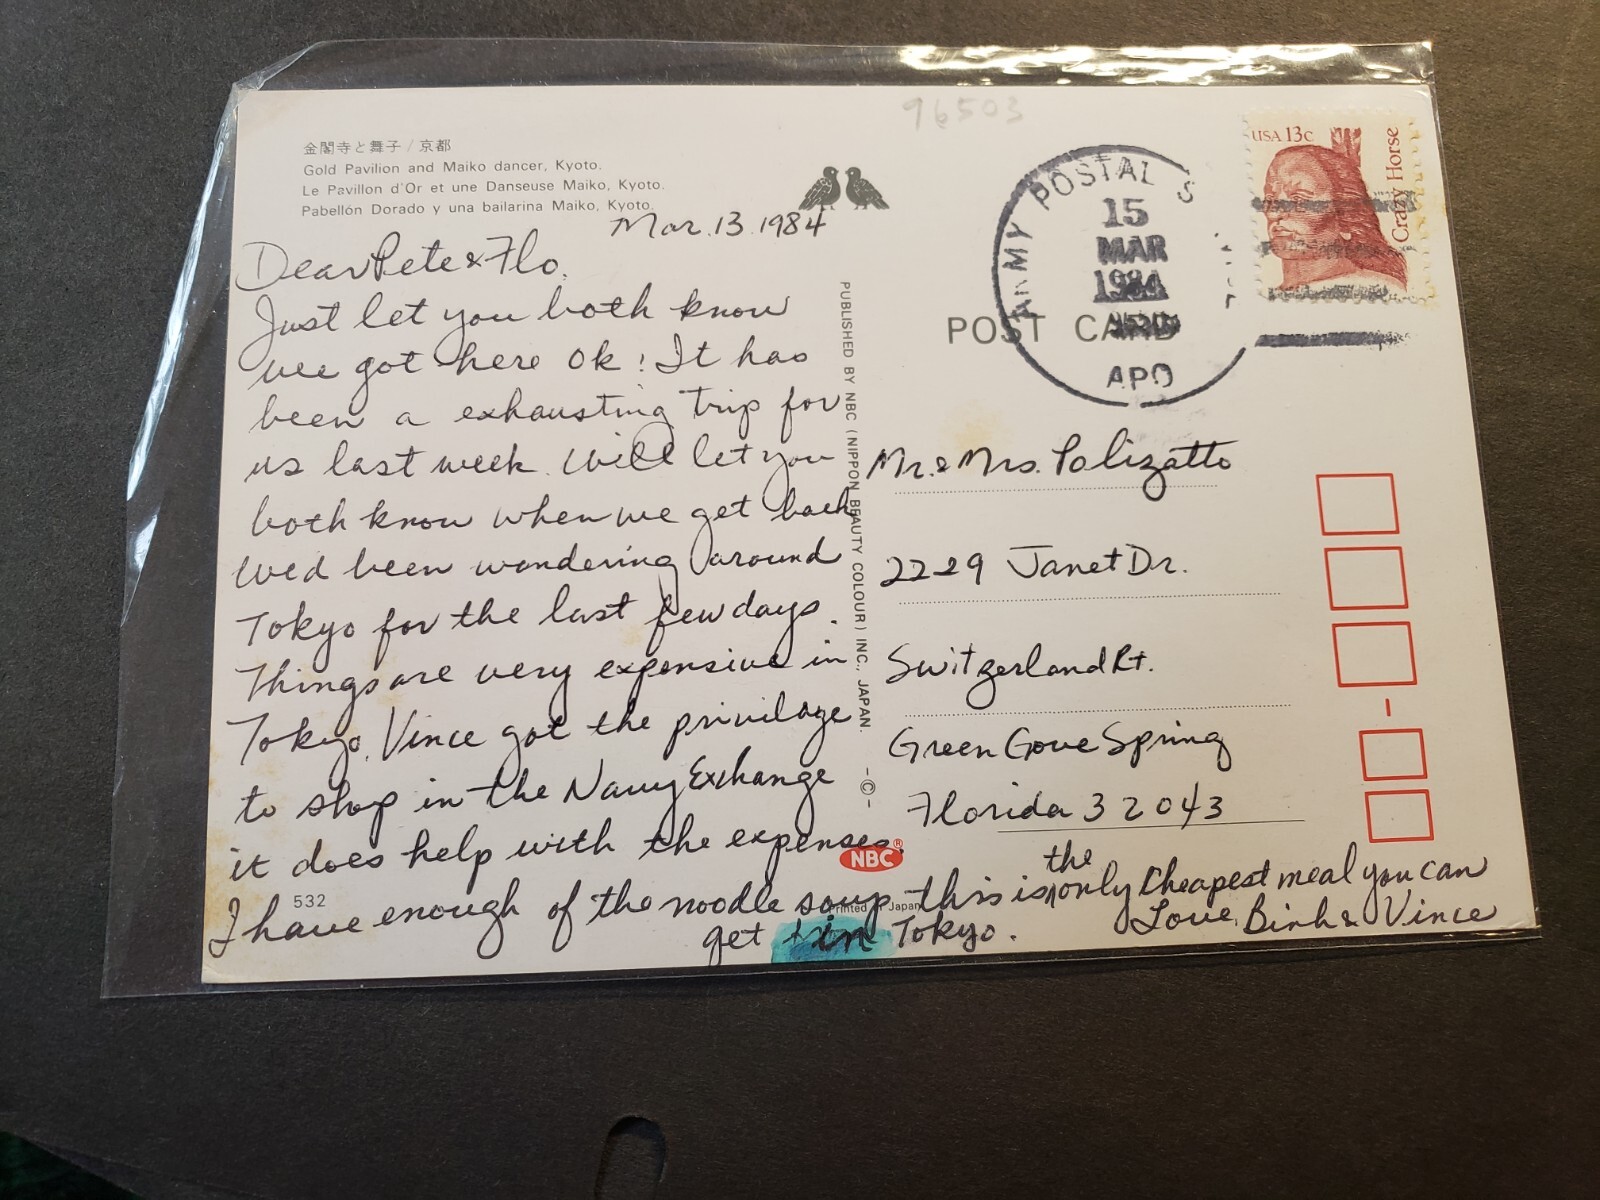 96503
金閣寺と舞子 / 京都
Gold Pavilion and Maiko dancer, Kyoto.
Le Pavillon d'Or et une Danseuse Maiko, Kyoto.
Pabellón Dorado y una bailarina Maiko, Kyoto.
Mar. 13. 1984
Dear Pete & Flo.
Just let you both know
we got here ok! It has
been a exhausting trip for
us last week. Will let you
both know when we get back
We'd been wandering around
Tokyo for the last few days.
Things are very expensive in
Tokyo. Vince got the privilage
to shop in the Navy Exchange
it does help with the expenses.
I have enough of the noodle soup this is the only cheapest meal you can
get in Tokyo.
Love, Binh & Vince
532
PUBLISHED BY NBC (NIPPON BEAUTY COLOUR) INC., JAPAN. -©-
NBC®
Printed in Japan
USA 13c
Crazy Horse
ARMY POSTAL S
15
MAR
1984
APO
POST CARD
Mr. & Mrs. Polizatto
2229 Janet Dr.
Switzerland Rt.
Green Cove Spring
Florida 32043